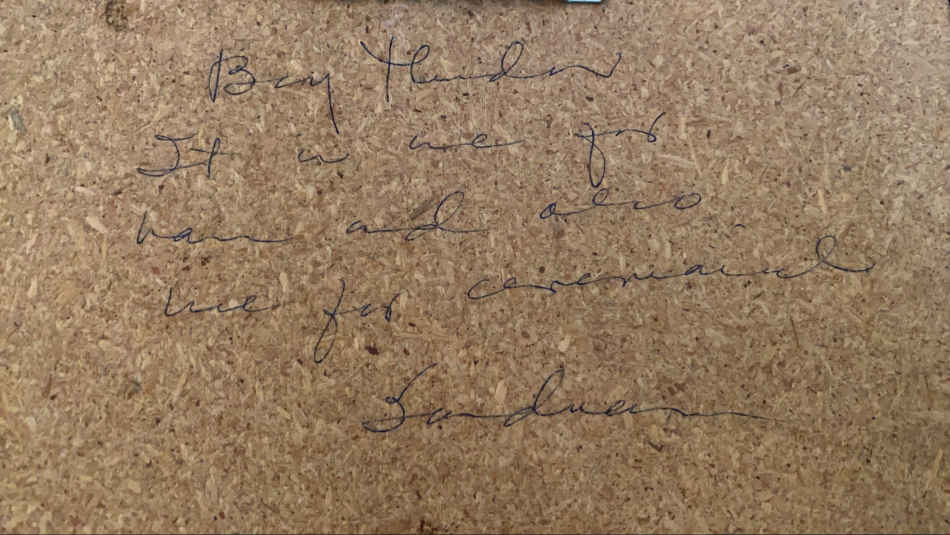 Boy Thunder
It is use for
rain and also
use for ceremonial